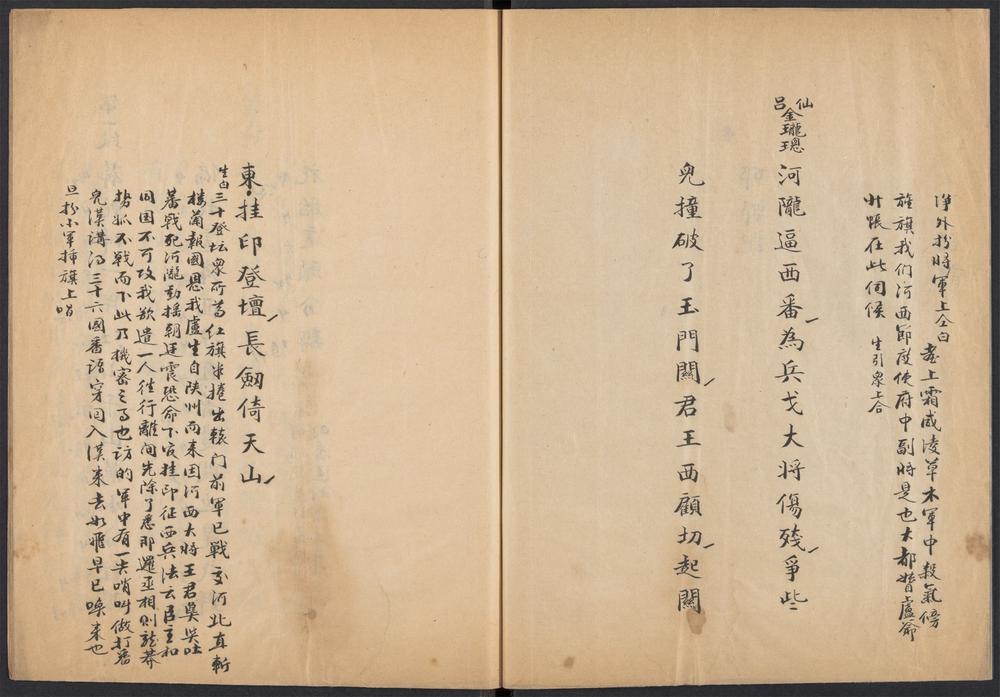 淨外扮將軍上仝白 臺上霜威凌草木軍中殺氣傍
旌旗我們河西節度使府中副將是也大都督盧爺
升帳在此伺候 生引衆上合
仙呂
金瓏璁 河隴逼西番為兵戈大將傷殘爭些
兒撞破了玉門關君王西顧切起關
東挂印登壇長劔倚天山
生白三十登坛衆所尊红旗半捲出轅门前軍已戰交河北直斬
楼蘭報國恩我盧生自陕州而来因河西大將王君㚟吐
蕃戰死河隴動摇朝廷震恐命下官挂印征西兵法云臣主和
同国不可攻我欲遣一人徃行離间先除了悉那邏丞相則龍莽
势孤不戰而下此乃機密之事也访的軍中有一尖哨叫做打番
兒漢講得三十六國番語穿回入漢来去如飛早已喚来也
旦扮小軍插旗上唱